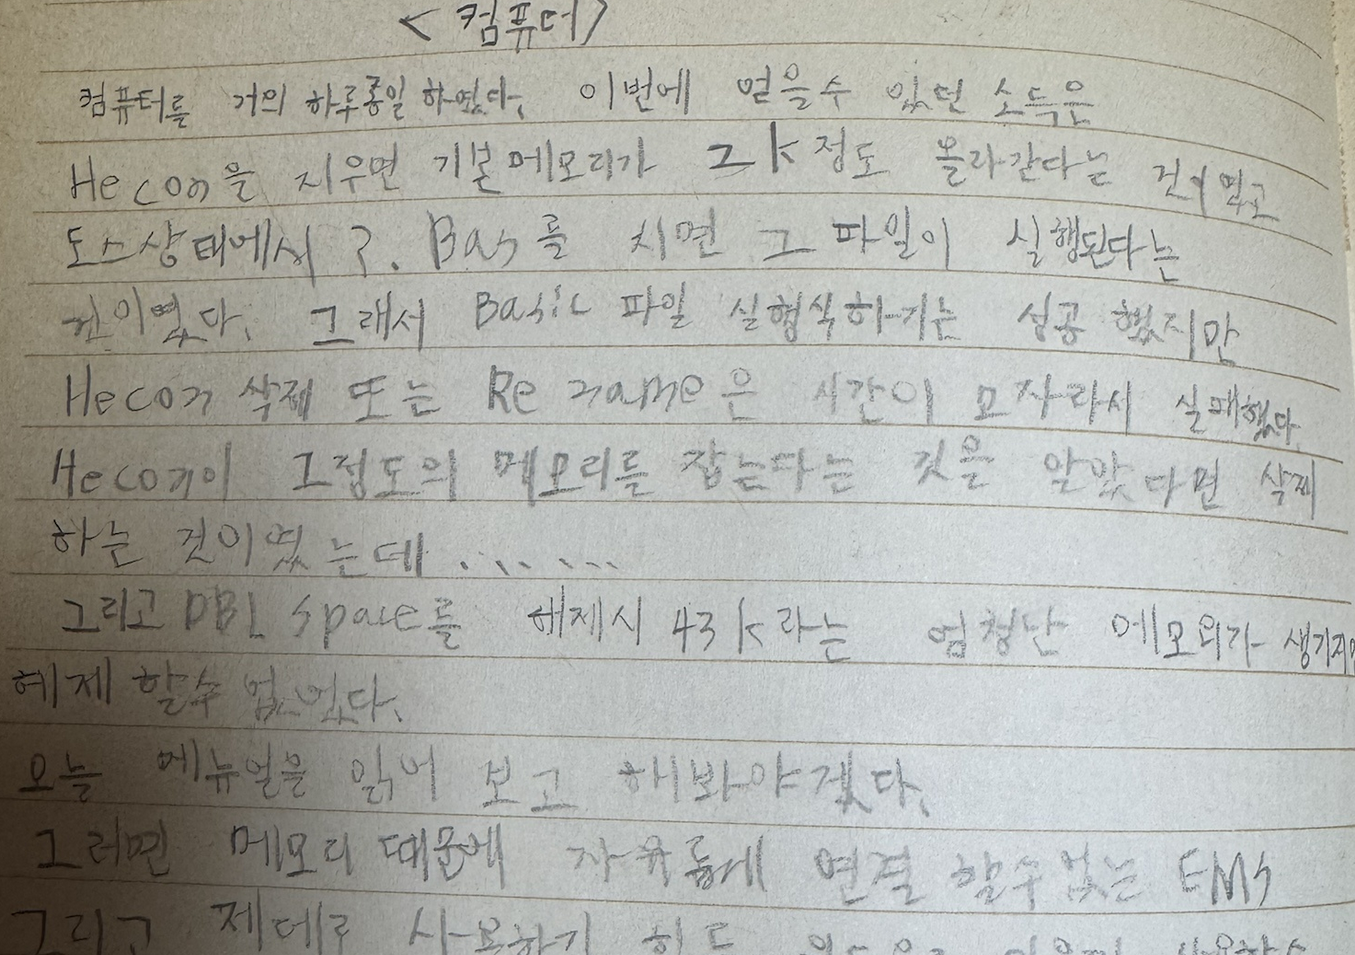 <컴퓨터>
컴퓨터를 거의 하루종일 하였다. 이번에 얻을수 있던 소득은
Hecon을 지우면 기본메모리가 그k정도 올라간다는 것이였고
도스상태에서 ?.Bas를 치면 그 파일이 실행된다는
것이였다. 그래서 Basic 파일 실행식하기는 성공 했지만
Hecon 삭제 또는 Rename은 시간이 모자라서 실패했다.
Hecon이 그정도의 메모리를 잡는다는 것을 알았다면 삭제
하는 것이였는데......
그리고 DBLSpace를 해제시 43k라는 엄청난 메모리가
헤제 할수 없었다.
오늘 메뉴얼을 읽어 보고 해봐야겠다.
그러면 메모리 때문에 자유롭게 연결 할수없는 EMS
그리고 제데로 사용하기